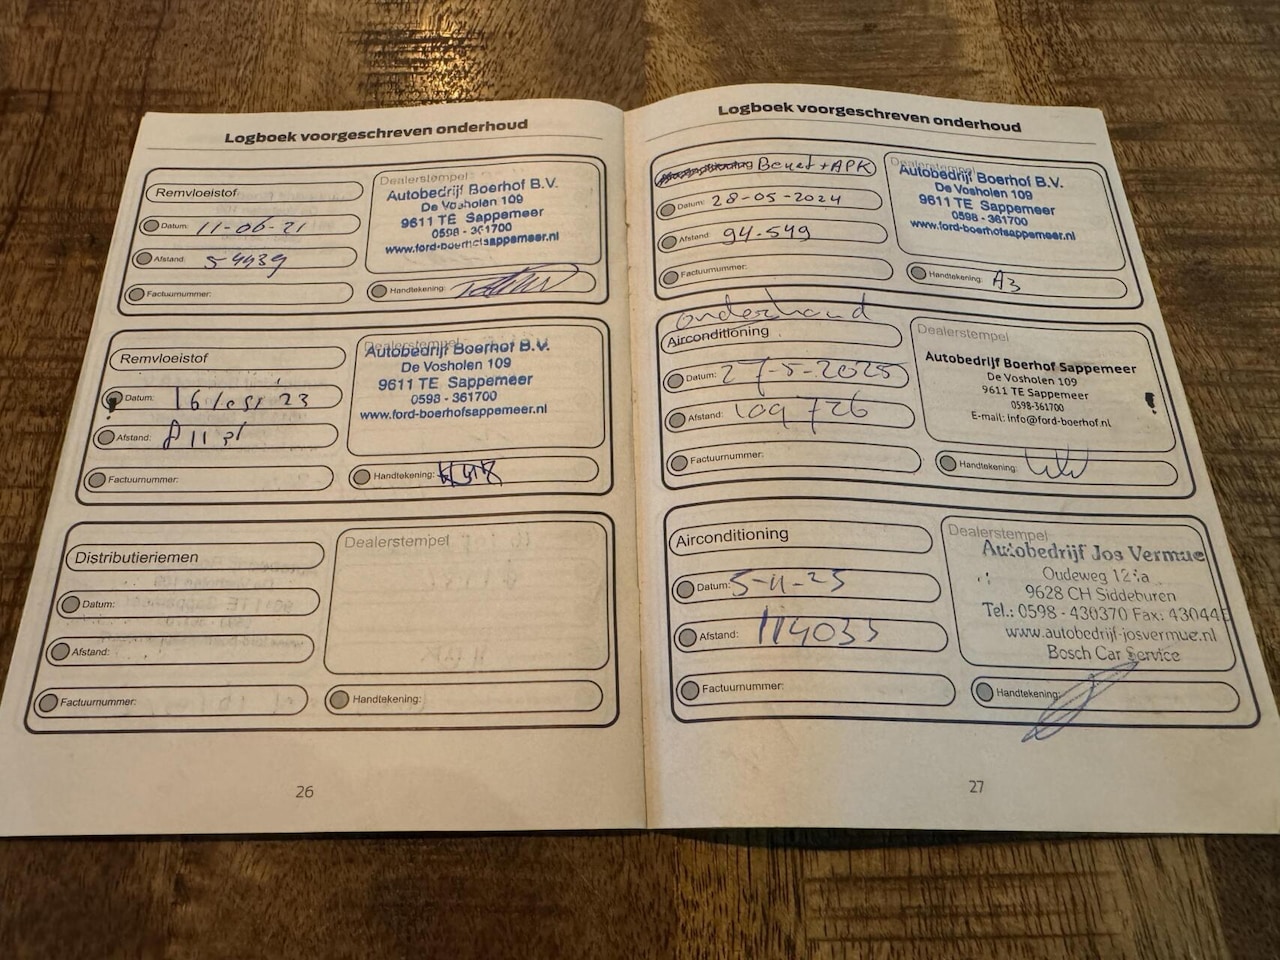 Logboek voorgeschreven onderhoud
Remvloeistof
Datum: 11-06-21
Afstand: 54439
Factuurnummer:
Dealerstempel
Autobedrijf Boerhof B.V.
De Vosholen 109
9611 TE Sappemeer
0598 - 361700
www.ford-boerhofsappemeer.nl
Handtekening:
Remvloeistof
Datum:
Afstand:
Factuurnummer:
Dealerstempel
Autobedrijf Boerhof B.V.
De Vosholen 109
9611 TE Sappemeer
0598 - 361700
www.ford-boerhofsappemeer.nl
Handtekening:
Distributieriemen
Datum:
Afstand:
Factuurnummer:
Dealerstempel
Handtekening:
26
Logboek voorgeschreven onderhoud
+APK
Datum: 28-05-2024
Afstand: 94.549
Factuurnummer:
Dealerstempel
Autobedrijf Boerhof B.V.
De Vosholen 109
9611 TE Sappemeer
0598 - 361700
www.ford-boerhofsappemeer.nl
Handtekening: A3
onderhoud
Airconditioning
Datum: 27-5-2025
Afstand: 109726
Factuurnummer:
Dealerstempel
Autobedrijf Boerhof Sappemeer
De Vosholen 109
9611 TE Sappemeer
0598-361700
E-mail: info@ford-boerhof.nl
Handtekening:
Airconditioning
Datum: 5-11-25
Afstand: 114033
Factuurnummer:
Dealerstempel
Autobedrijf Jos Vermue
Oudeweg
9628 CH Siddeburen
Tel.: 0598 - 430370 Fax: 43044
www.autobedrijf-josvermue.nl
Bosch Car Service
Handtekening:
27